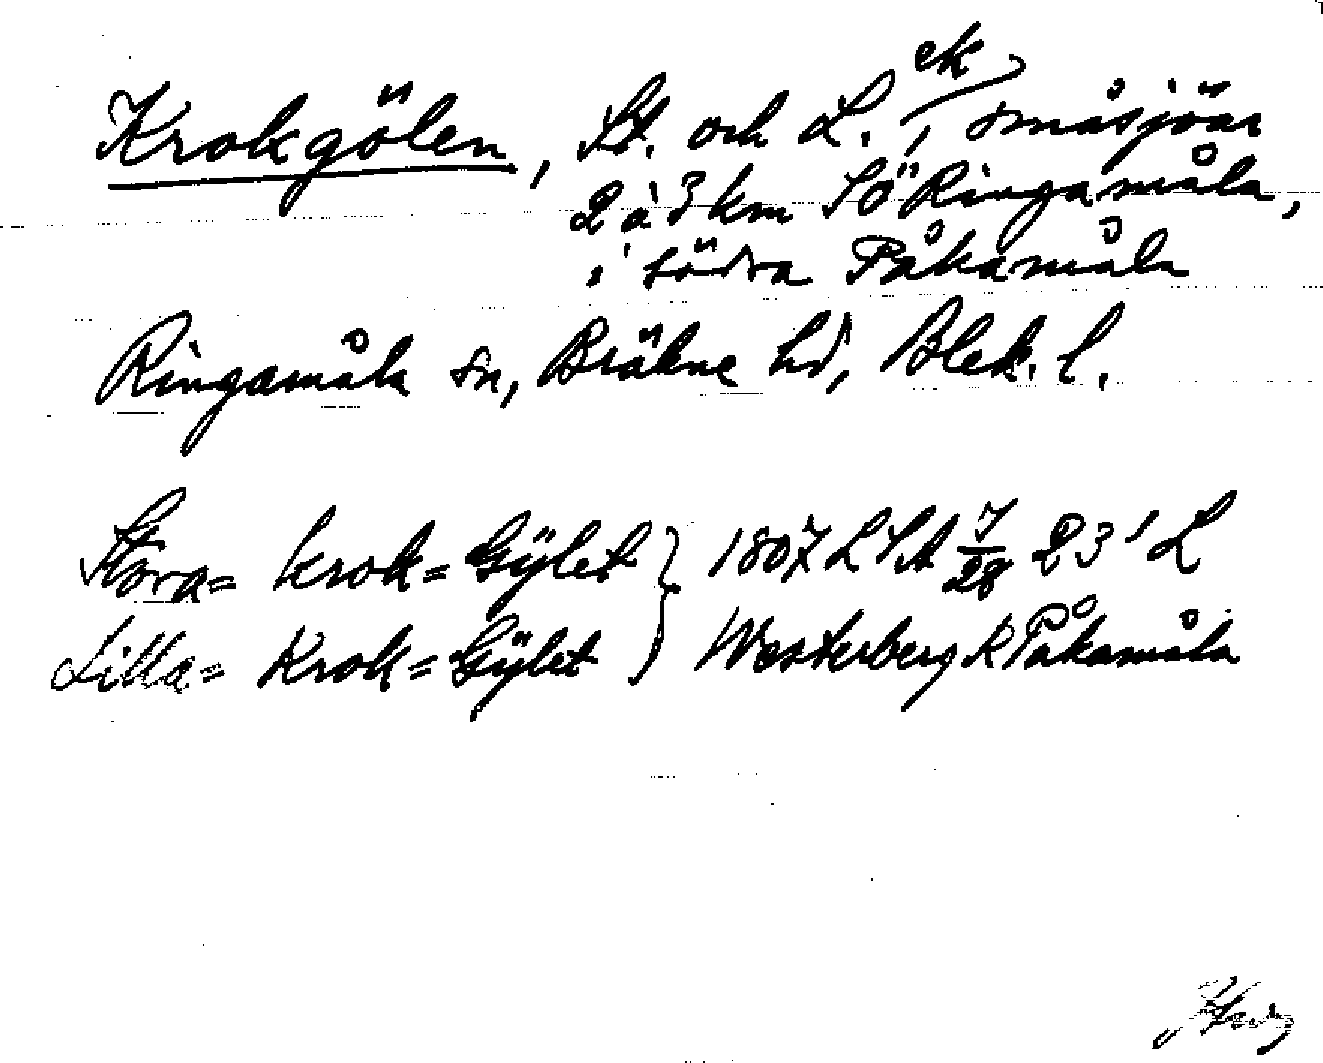 Krokgölen, St. och L. ek, småsjöar
2 à 3 km SÖ Ringamåla,
i södra Påkamåla
Ringamåla sn, Bräkne hd, Blek. l.
Stora= Krok=Gÿlet } 1807 LSA 7/28 23' L
Lilla= Krok=Gÿlet } Westerberg K Påkamåla